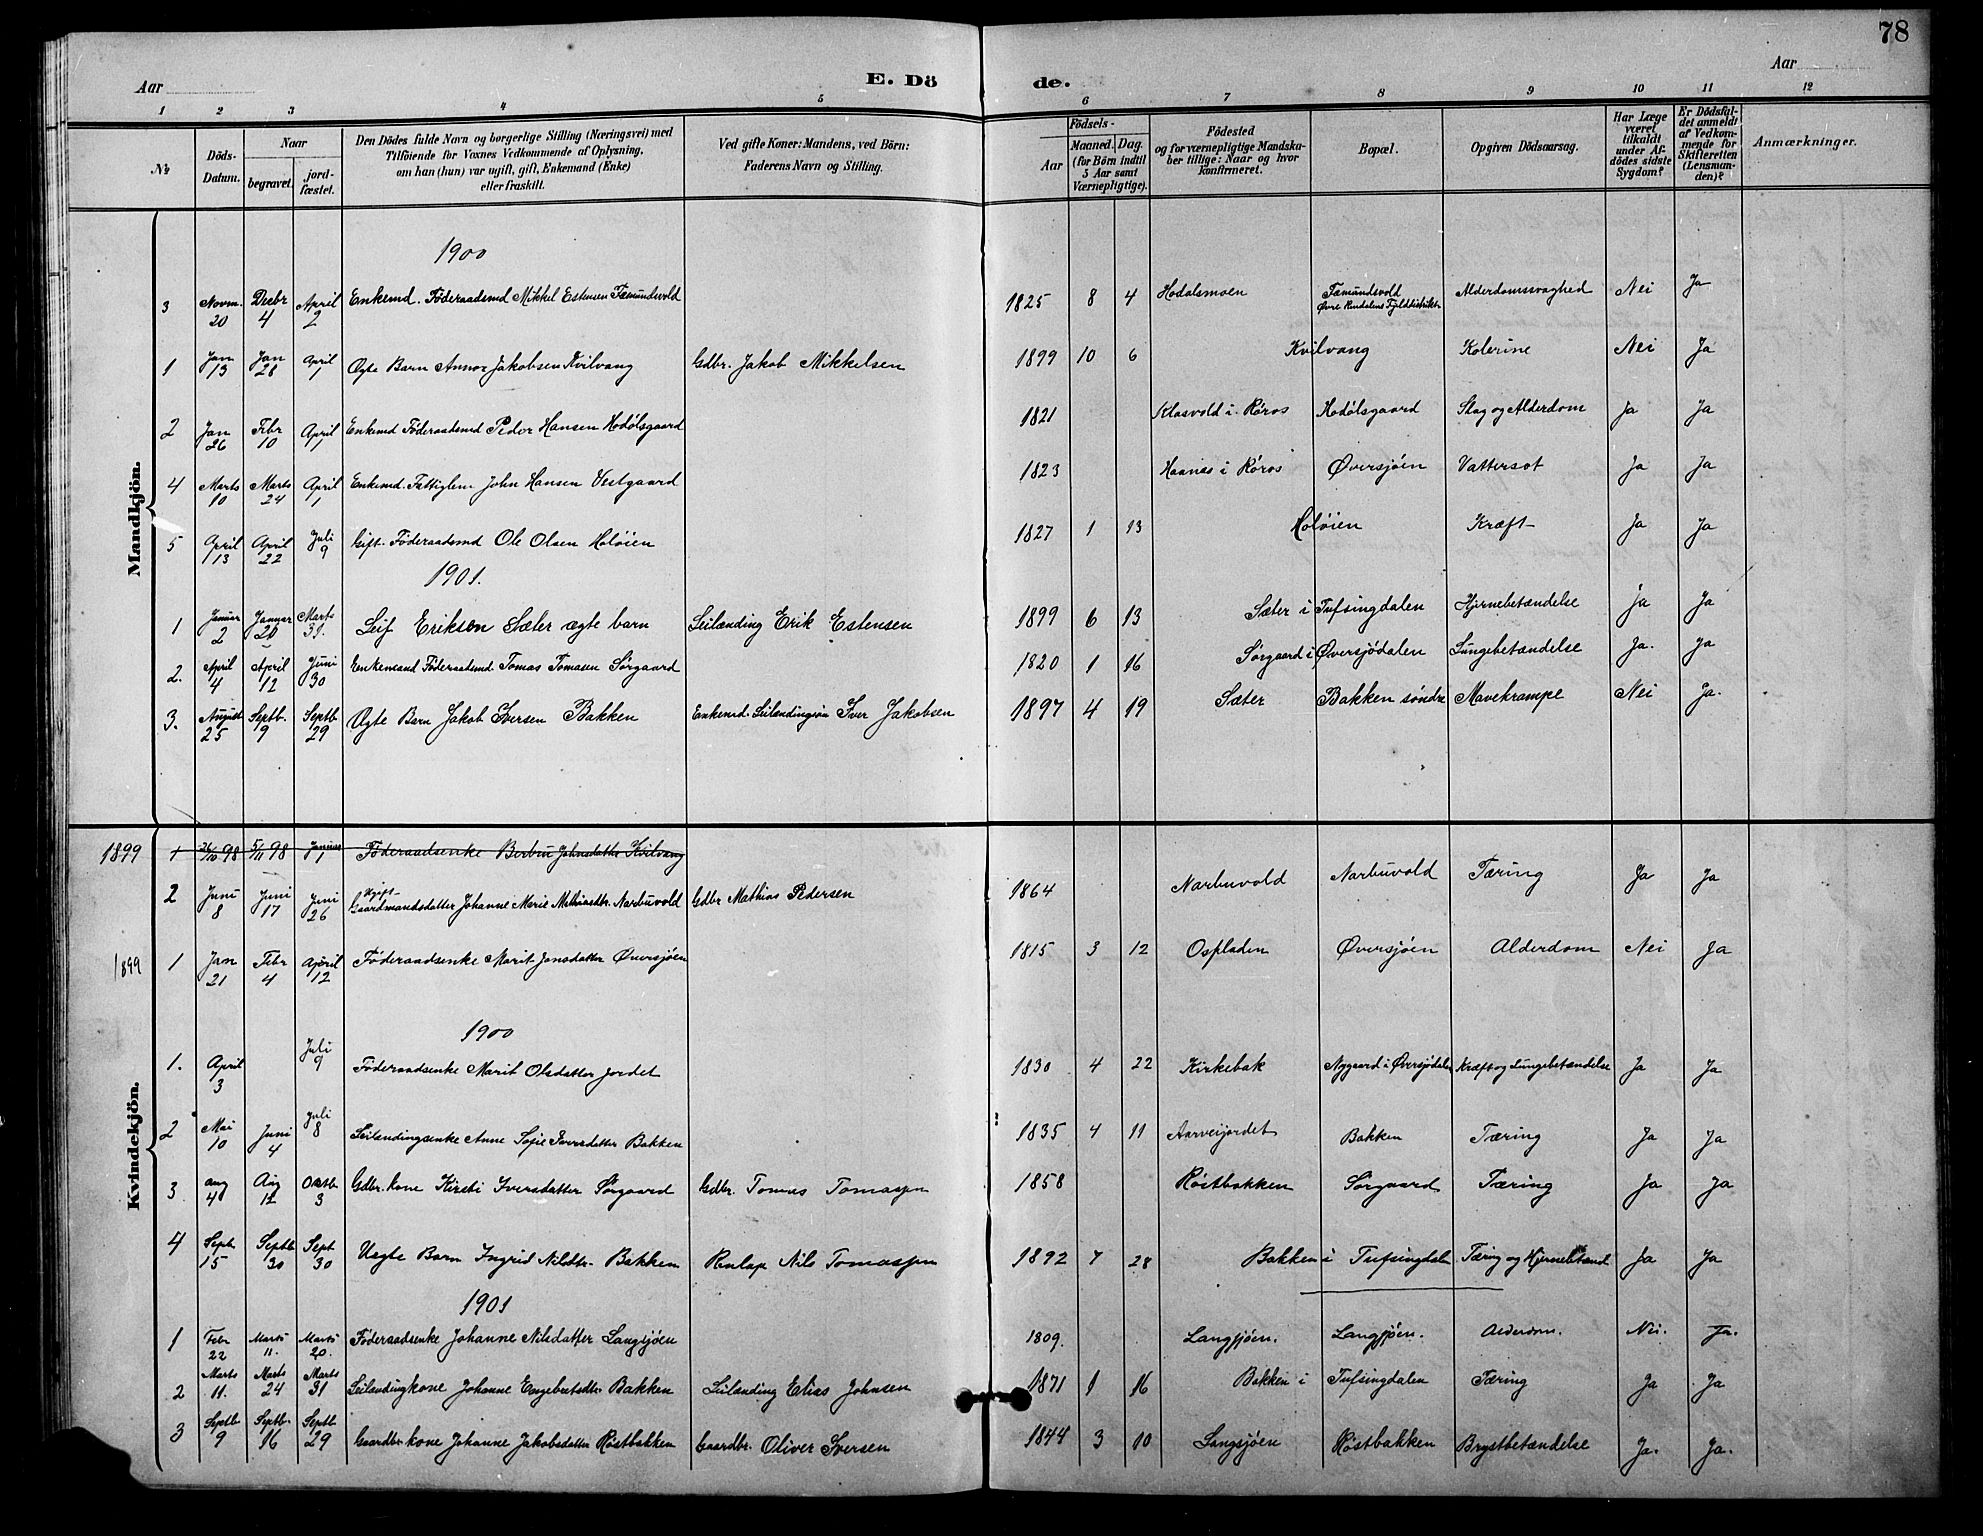 78
Aar
E. Dö
de.
Aar
1 2 3 4 5 6 7 8 9 10 11 12
№ Döds-Datum. Naar begravet. jord-fæstet. Den Dödes fulde Navn og borgerlige Stilling (Næringsvei) med Tilföiende for Voxnes Vedkommende af Oplysning, om han (hun) var ugift, gift, Enkemand (Enke) eller fraskilt. Ved gifte Koner: Mandens, ved Börn: Faderens Navn og Stilling. Födsels- Aar Maaned. Dag. (for Börn indtil 5 Aar samt Værnepligtige). Födested og for værnepligtige Mandskaber tillige: Naar og hvor konfirmeret. Bopæl. Opgiven Dödsaarsag. Har Læge været tilkaldt under Afdödes sidste Sygdom? Er Dödsfaldet anmeldt af Vedkommende for Skifteretten (Lensmanden)? Anmærkninger.
Mandkjön.
1900
3 Novm. 20 Decbr 4 April 2 Enkemd. Föderaadsmd Mikkel Estensen Fæmundsvold 1825 8 4 Hodalsmoen Fæmundsvold Øvre Rendalens Fjelddistrikt Alderdomssvaghed Nei Ja
1 Jan 13 Jan 28 April 1 Ægte Barn Jakobsen Kvilvang Gdbr. Jakob Mikkelsen 1899 10 6 Kvilvang Kolerine Nei Ja
2 Jan 26 Febr 10 April 1 Enkemd Föderaadsmd Peder Hansen Hodölsgaard 1821 Klasvold i Röros Hodölsgaard Slag og Alderdom Ja Ja
4 Marts 10 Marts 24 April 1 Enkemd. Fattiglem John Hansen Vestgaard 1823 Haanæs i Röros Øversjöen Vattersot Ja Ja
5 April 13 April 22 Juli 9 Gift. Föderaadsmd Ole Olsen Holöien 1827 1 13 Holöien Kræft Ja Ja
1901.
1 Januar 2 Januar 20 Marts 31. Leif Eriksen Sæter ægte barn Leilænding Erik Estensen 1899 6 13 Sæter i Tufsingdalen Hjernebetændelse Ja Ja
2. April 4 April 12 Juni 30 Enkemand Föderaadsmd. Tomas Tomasen Sörgaard 1820 1 16 Sörgaard i Øversjödalen Lungebetændelse Ja. Ja
3. August 25 Septb. 9 Septb 29 Ægte Barn Jakob Iversen Bakken Enkemd. Leilændingsön Iver Jakobsen 1897 4 19 Sæter Bakken söndre Mavekrampe Nei Ja.
Kvindekjön.
1899 1 26/10 98 5/11 98 Januar 1 Föderaadsenke Berbru Johnsdatter Kvilvang
2 Juni 8 Juni 17 Juni 26 Ugift Gaardmandsdatter Johanne Marie Mathiasdtr. Narbuvold Gdbr Mathias Pedersen 1864 Narbuvold Narbuvold Tæring Ja Ja
1899 1 Jan 21 Febr 4 April 12 Föderaadsenke Marit Jonsdatter Øversjöen 1815 3 12 Ospladen Øversjöen Alderdom Nei Ja
1900
1. April 3 Juli 9 Föderaadsenke Marit Olsdatter Jordet 1830 4 22 Kirkebak Nygaard i Øversjödalen Kræft og Lungebetændelse Ja Ja
2 Mai 10 Juni 4 Juli 8 Leilændingsenke Anne Sofie Iversdatter Bakken 1835 4 11 Aarveijordet Bakken Tæring Ja Ja
3 Aug 4 Aug 12 Oktb 3 Gdbr. kone Kirsti Iversdatter Sörgaard Gdbr. Tomas Tomassen 1858 Röstbakken Sörgaard Tæring Ja Ja
4 Septb 15 Septb 30 Sept 30 Uægte Barn Ingrid Nilsdtr. Bakken Renlap Nils Tomassen 1892 7 28 Bakken i Tufsingdalen Tæring og Hjernebetænd Ja Ja
1901
1 Febr 22 Marts 11. Marts 20. Föderaadsenke Johanne Nilsdatter Langsjöen 1809. Langsjöen. Langsjöen. Alderdom. Nei. Ja.
2 Marts 11. Marts 24 Marts 31 Leilændingkone Johanne Engebretsdtr Bakken Leilænding Elias Johnsen 1871 1 16 Bakken i Tufsingdalen Tæring Ja Ja
3 Septb 9 Septb. 16 Septb 29 Gaardbr. kone Johanne Jakobsdatter Röstbakken Gaardbr. Oliver Iversen 1844 3 10 Langsjöen Röstbakken Brystbetændelse Ja. Ja.